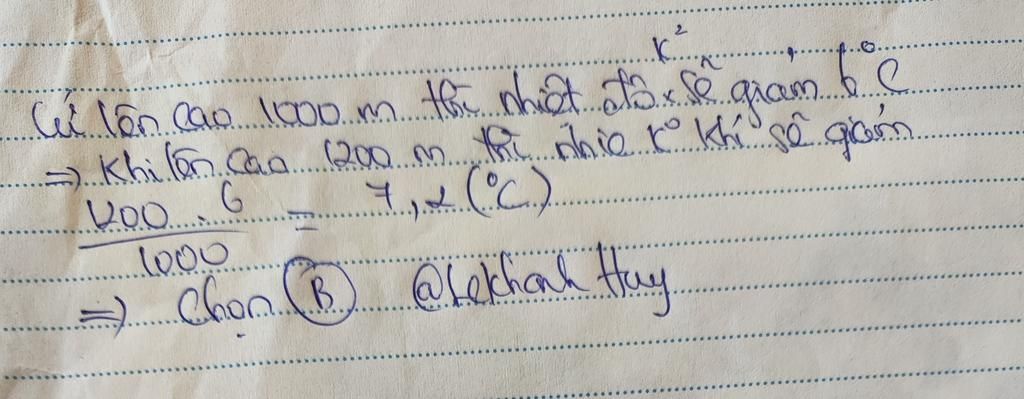 k²
Cứ lên cao 1000 m thì nhiệt độ sẽ giảm 6°C
=> Khi lên cao 1200 m thì nhiệ k° khí sẽ giảm
1200 . 6 = 7,2 (°C)
1000
=> Chọn B @LeKhanh Huy